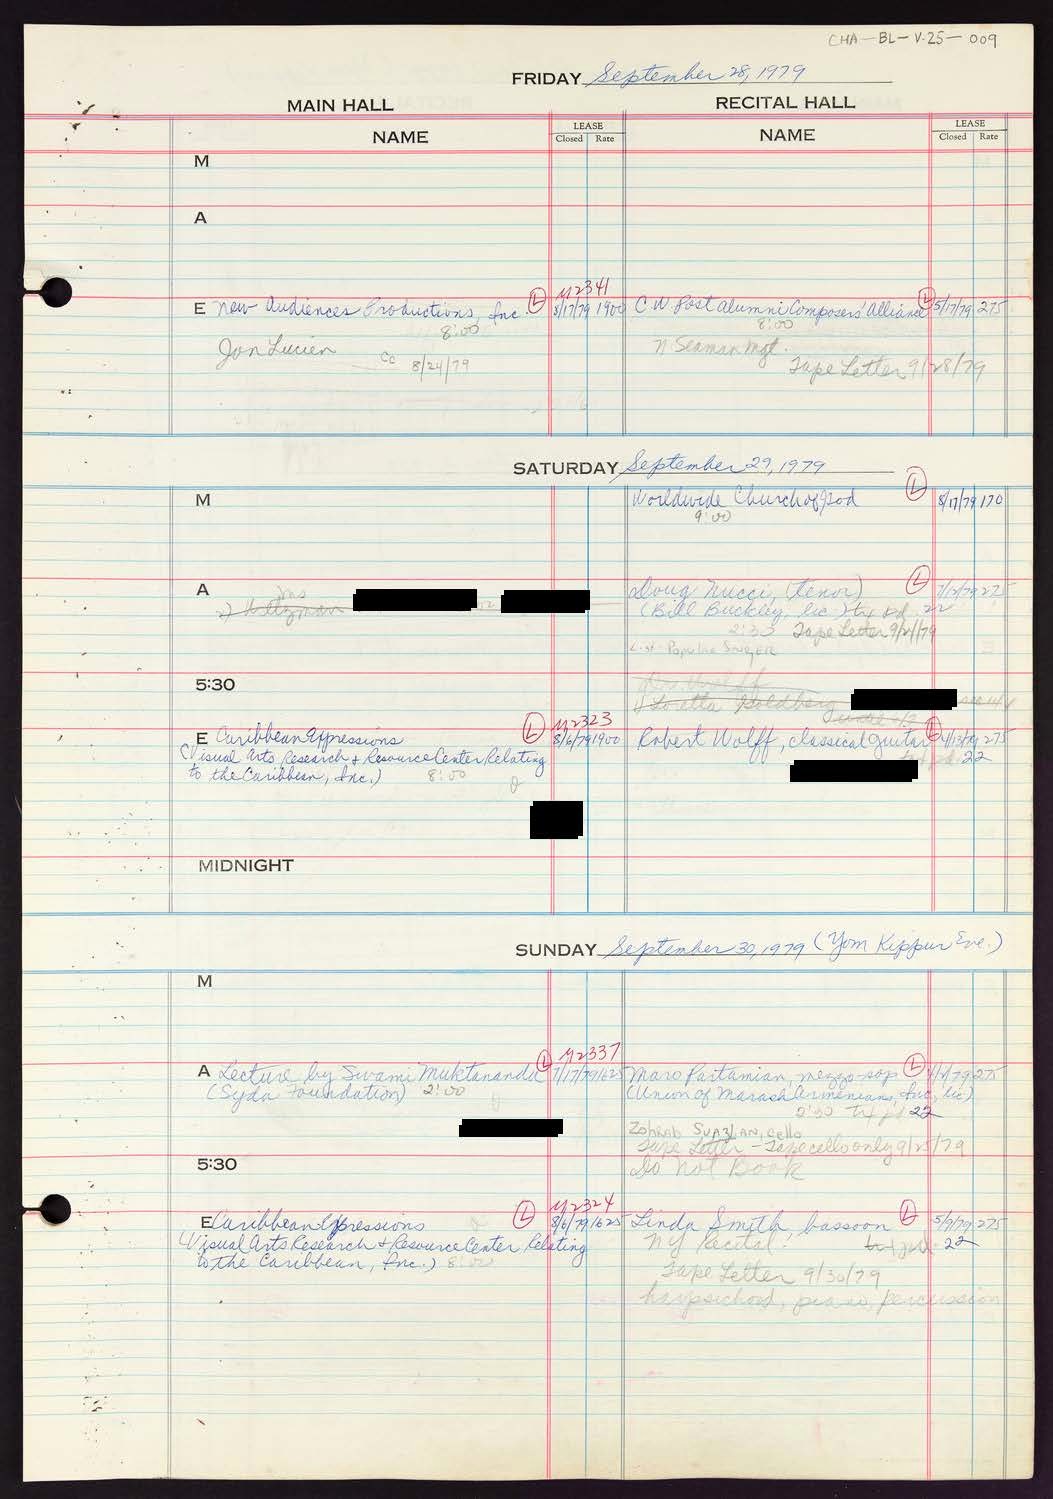 CHA-BL-V.25-009
FRIDAY September 28, 1979
MAIN HALL
RECITAL HALL
NAME
LEASE
Closed Rate
NAME
LEASE
Closed Rate
M
A
M2341
E New Audiences Productions, Inc. L 8/17/79 1900
8:00
Jon Lucien
cc 8/24/79
C W Post Alumni Composers' Alliance L 5/17/79 275
8:00
N Seaman Mgt.
Tape Letter 9/28/79
SATURDAY September 29, 1979
M
Worldwide Church of God L 8/17/79 170
9:00
A
2) Holtzman
Doug Nucci, (tenor) L 7/2/79 275
(Bill Buckley, lic.) 22
2:30 Tape Letter 9/21/79
Popular Singer
5:30
Loretta Goldberg
M2323
E Caribbean Expressions L 8/6/79 1900
(Visual Arts, Research & Resource Center Relating
to the Caribbean, Inc.) 8:00
Robert Wolff, classical guitar L 4/13/79 275
22
MIDNIGHT
SUNDAY September 30, 1979 (Yom Kippur Eve.)
M
M2337
A Lecture by Swami Muktananda L 7/17/79 1625
(Syda Foundation) 2:00
Maro Partamian, mezzo-sop L 275
(Union of Marash Armenians, Inc, lic)
2:30 22
Zohrab cello
Tape Letter - Tape cello only 9/25/79
5:30
Do Not Book
M2324
E Caribbean Expressions L 8/6/79 1625
(Visual Arts Research & Resource Center Relating
to the Caribbean, Inc.) 8:00
Linda Smith, bassoon L 5/9/79 275
NY Recital. 22
Tape Letter 9/30/79
harpsichord, piano, percussion